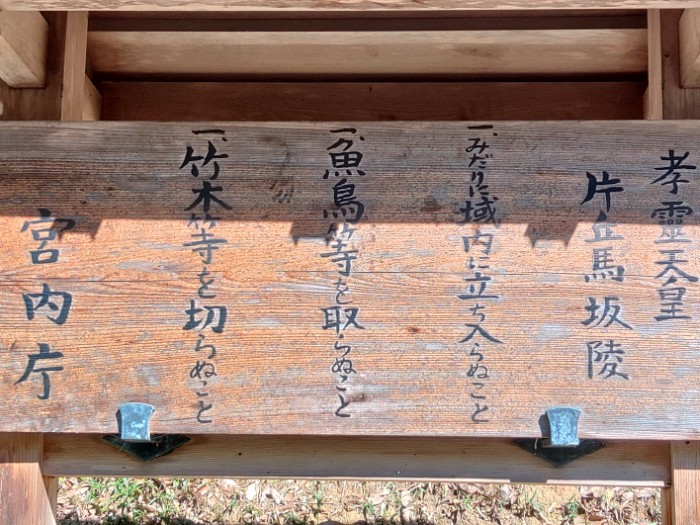 孝霊天皇
片丘馬坂陵
一、みだりに域内に立ち入らぬこと
一、魚鳥等を取らぬこと
一、竹木等を切らぬこと
宮内庁